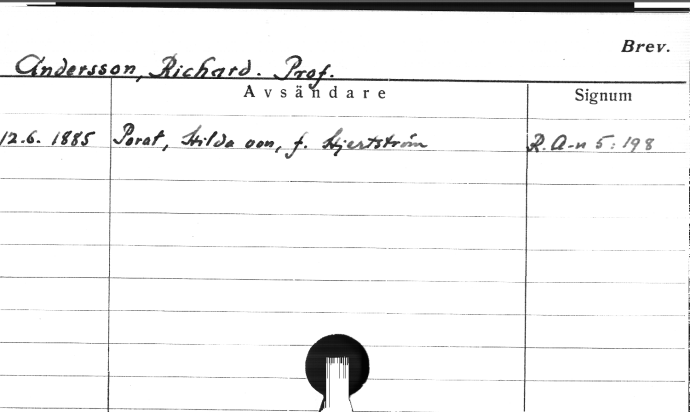 Brev.
Andersson, Richard. Prof.
Avsändare Signum
12.6. 1885 Porat, Hilda von, f. Hjertström R. A-n 5:198